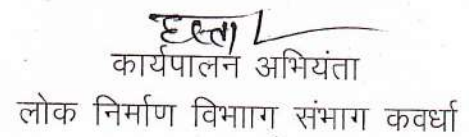 हस्ता/
कार्यपालन अभियंता
लोक निर्माण विभााग संभाग कवर्धा